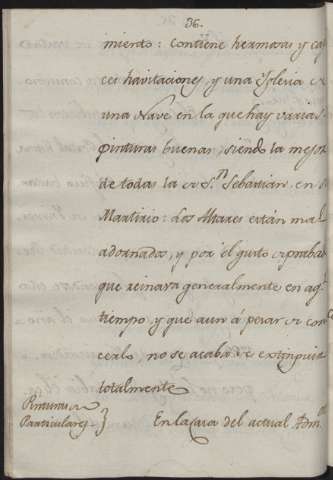 36.
miento: contiene hermosas y cap
ces havitaciones, y una Yglesia de
una Nave en la que hay varias
pinturas buenas, siendo la mejor
de todas la de Sn. Sebastian en
Martirio: Los Altares están mal
adornados, y por el gusto reprobado
que reinava generalmente en aql
tiempo, y que aun á pesar de cono
cerlo no se acaba de extinguir
totalmente
Pinturas de
Particulares } En la Casa del actual Admor